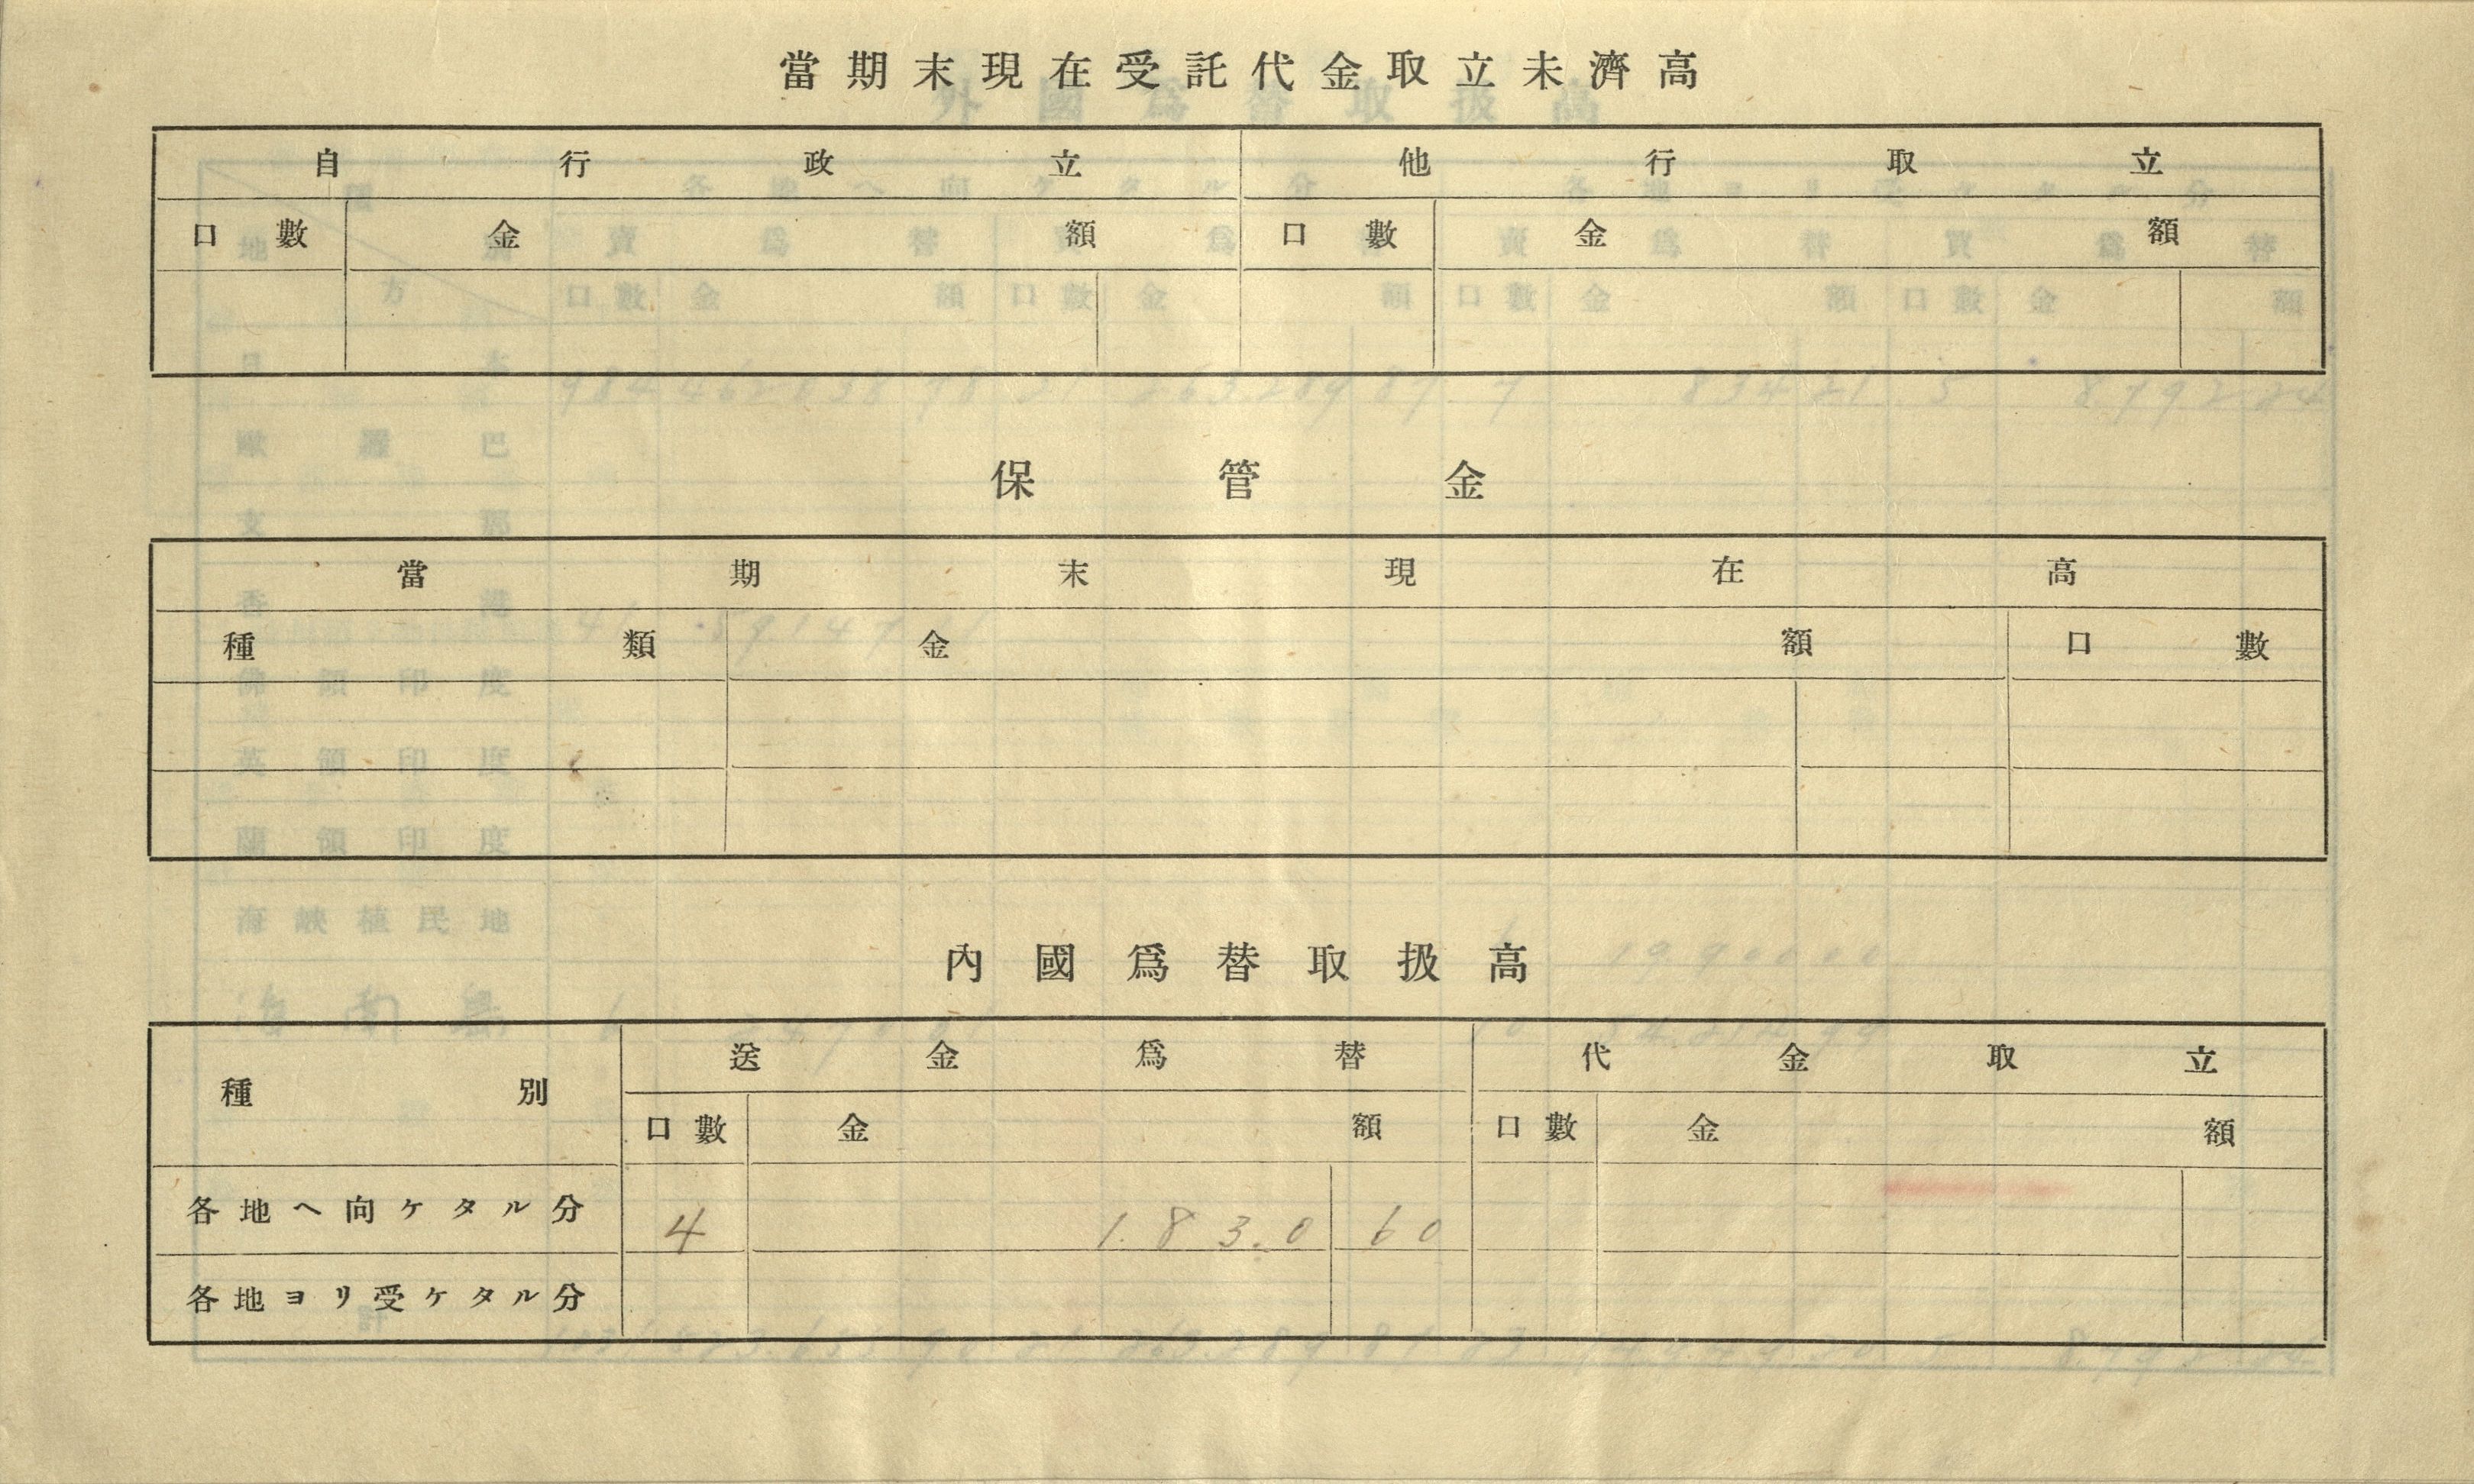 當期末現在受託代金取立未濟高
自行政立 他行取立
口數 金額 口數 金額
保管金
當期末現在高
種類 金額 口數
內國爲替取扱高
種別 送金爲替 代金取立
口數 金額 口數 金額
各地ヘ向ケタル分 4 1.830.60
各地ヨリ受ケタル分